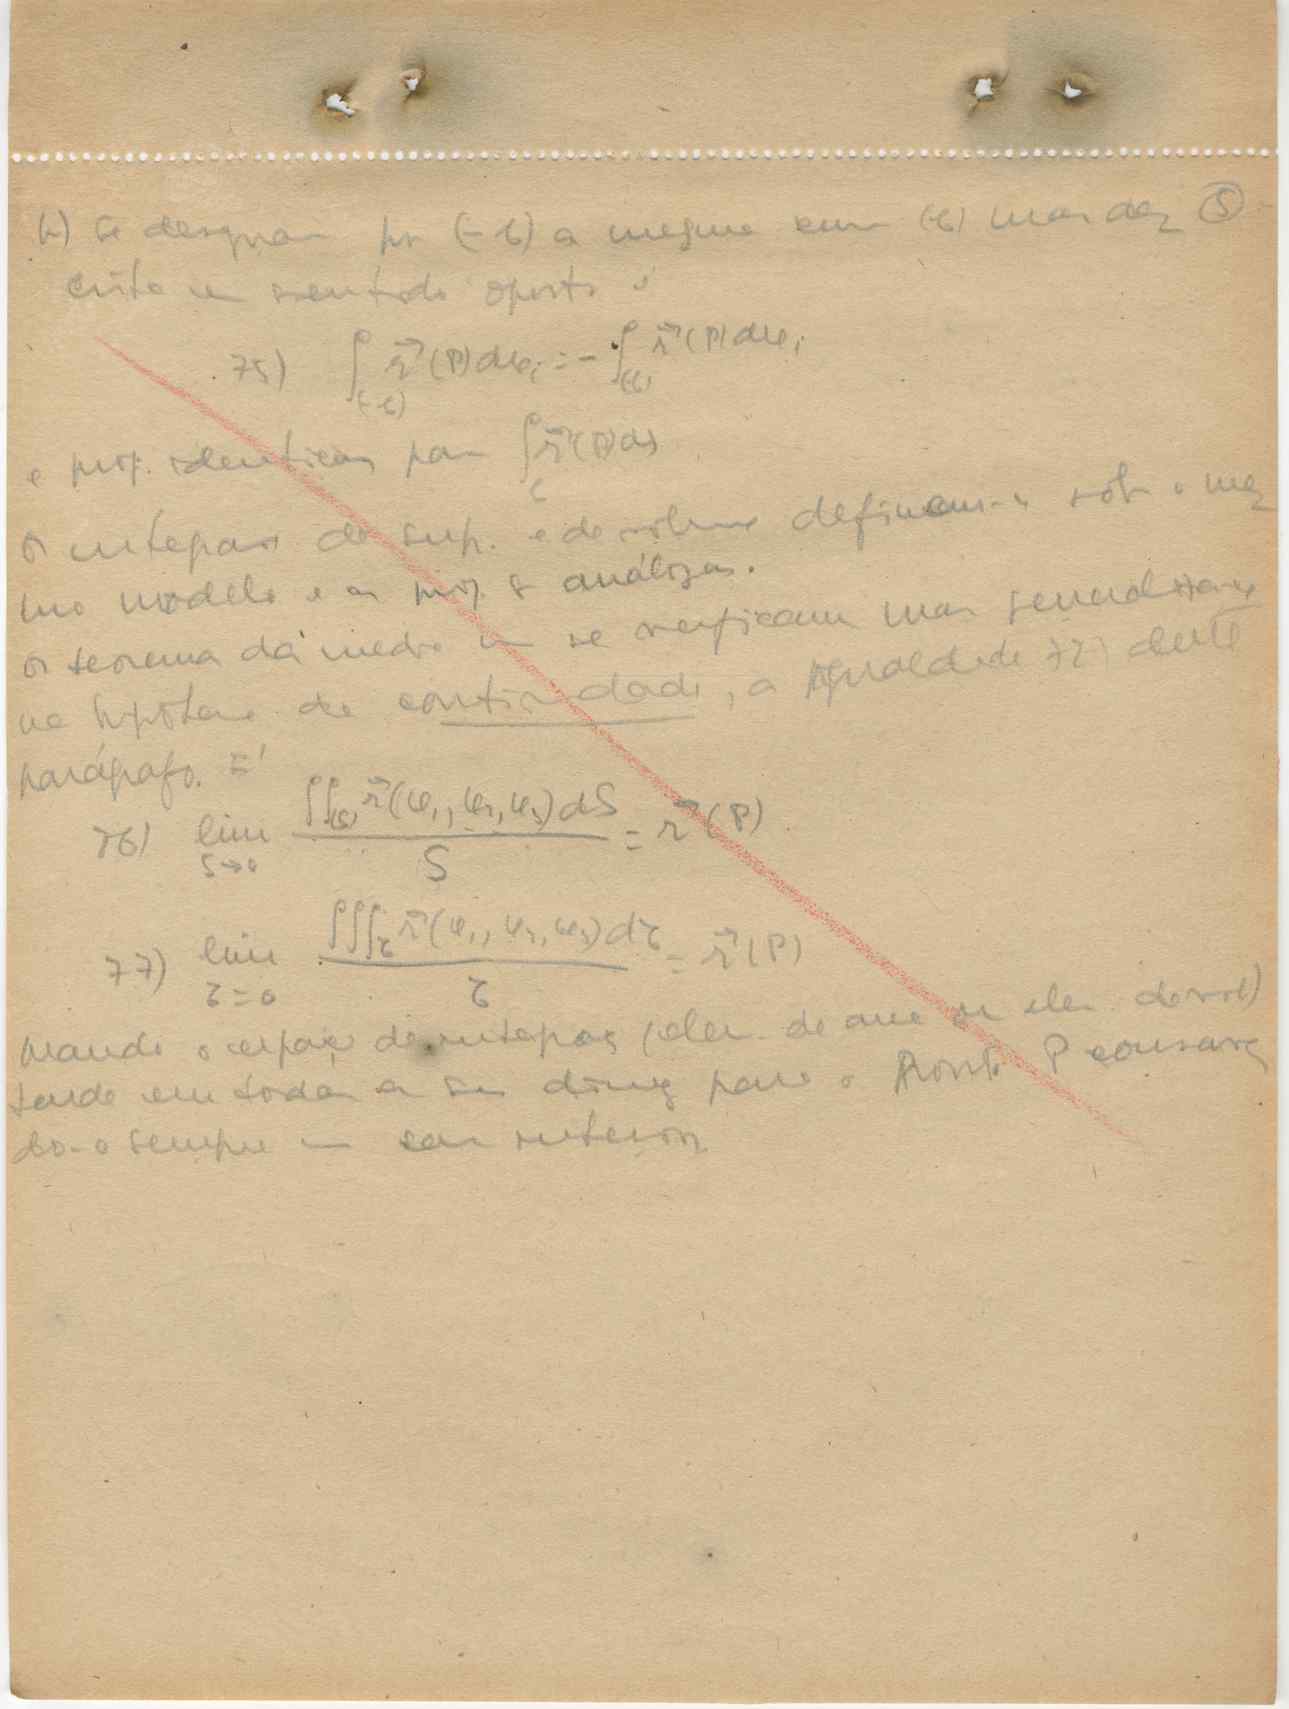 h) Se designar por (-C) a mesma curva (C) mas des ⑤
crita em sentido oposto é
75) ∫(-C) r⃗(P) dφi = - ∫(C) r⃗(P) dφi
e prop. identicas para ∫C r⃗(P) ds
Os integrais de sup. e de volume definem-se sob o mes
mo modelo e as prop. s análogas.
Os teorema da media se verificam mas generalizam-se
na hipotese de continuidade, a igualdade 72) deste
parágrafo. É
76) lim S→0 ∫∫(S) r⃗(φ1, φ2, φ3) dS / S = r⃗(P)
77) lim τ=0 ∫∫∫τ r⃗(φ1, φ2, φ3) dτ / τ = r⃗(P)
quando o espaço de integraç (elem. de area ou elem. de vol)
tende em todas as suas dimens para o ponto P conservan
do-o sempre no seu interior